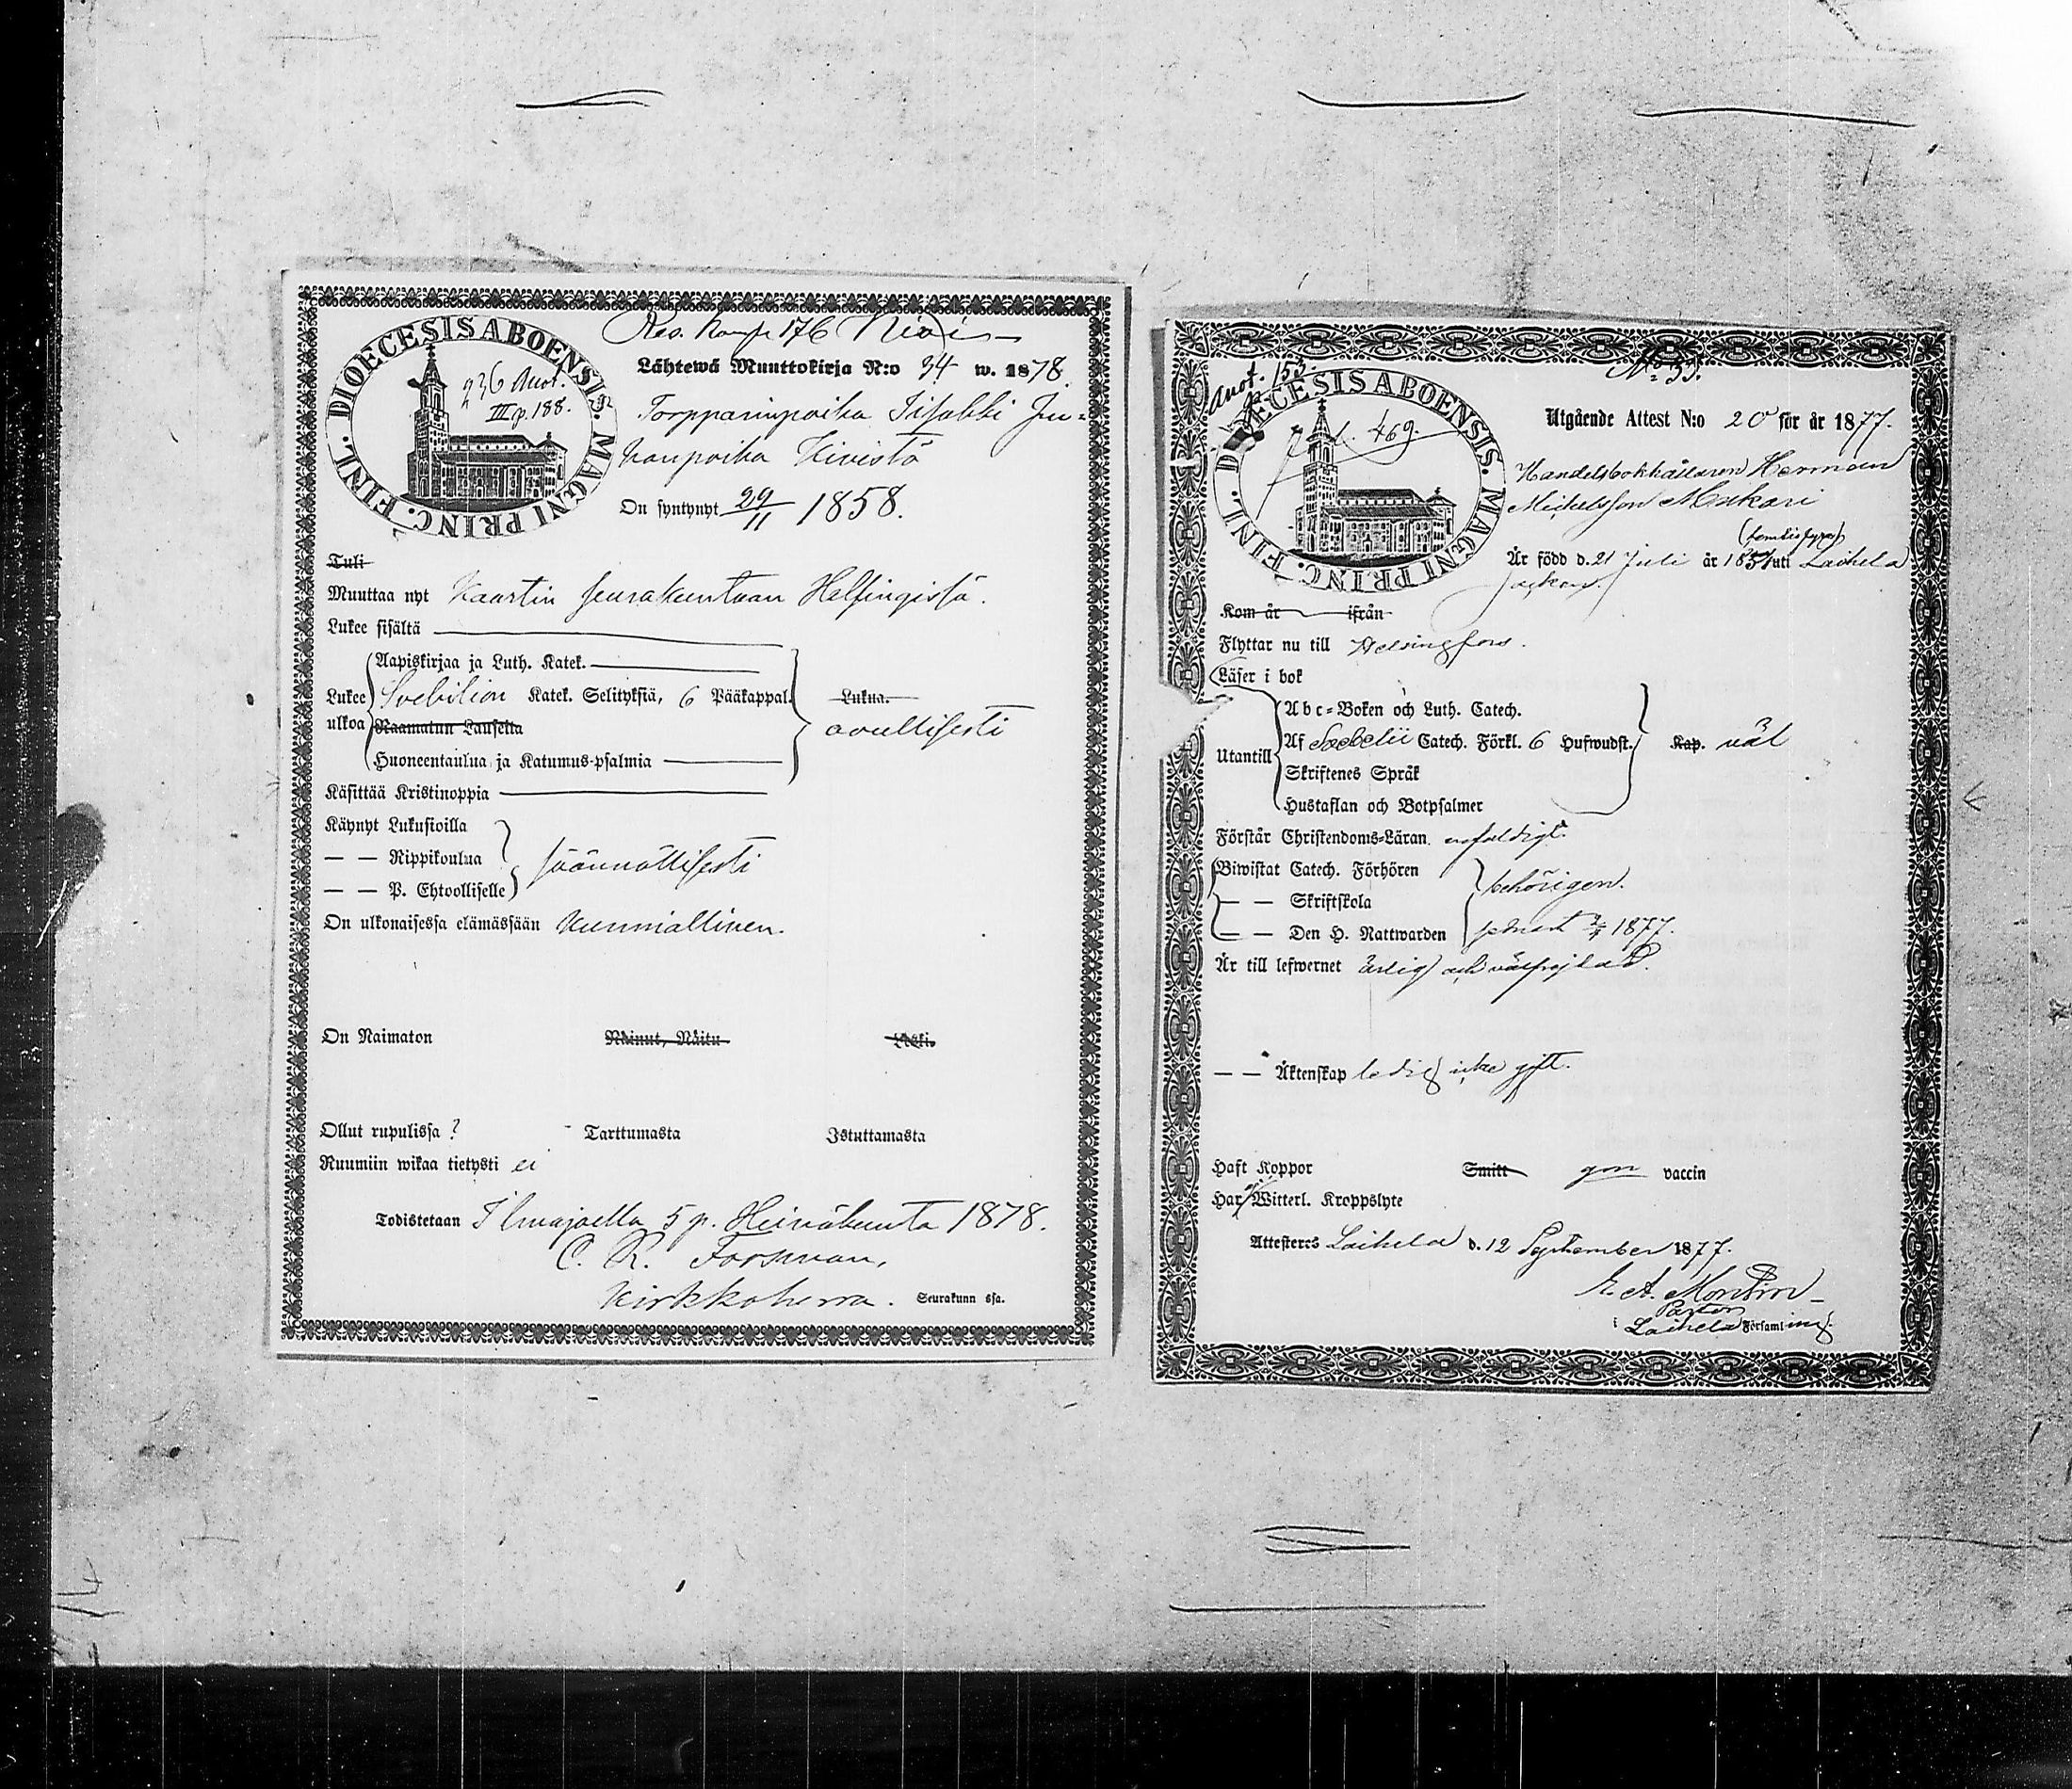 Res. Komp 176
DIOECESIS ABOENSIS. MAGNI PRINC. FINL.
236 Anot.
III p. 188.
Lähtewä Muuttokirja N:o 34 w. 1878.
Torpparinpoika Iisakki Ju-
hanpoika Kivistö
On syntynyt 29/11 1858.
Tuli
Muuttaa nyt Kaartin seurakuntaan Helsingissä.
Lukee sisältä
Aapiskirjaa ja Luth. Katek.
Lukee ulkoa Svebilion Katek. Selityksiä, 6 Pääkappal. Lukua.
Raamatun Lauseita awullisesti
Huoneentaulua ja Katumus-psalmia
Käsittää Kristinoppia
Käynyt Lukusioilla
— — Rippikoulua säännöllisesti
— — P. Ehtoolliselle
On ulkonaisessa elämässään kunniallinen.
On Naimaton Nainut, Naitu Leski.
Ollut rupulissa ? Tarttumasta Istuttamasta
Ruumiin wikaa tietysti ei
Todistetaan Ilmajoella 5 p. Heinäkuuta 1878.
C. R. Forsman,
Kirkkoherra. Seurakunn ssa.
Anot. 153.
No 53.
DIOECESIS ABOENSIS. MAGNI PRINC. FINL.
469.
Utgående Attest N:o 20 för år 1877.
Handelsbokhållaren Herman
Michelsson Mukari
Är född d. 21 Juli år 1854 uti Laihela
socken.
Kom år ifrån
Flyttar nu till Helsingfors.
Läser i bok
Abc-Boken och Luth. Catech.
Utantill Af Svebelii Catech. Förkl. 6 Hufwudst. Kap. väl
Skriftenes Språk
Hustaflan och Botpsalmer
Förstår Christendoms-Läran enfaldigt.
Biwistat Catech. Förhören
— — Skriftskola behörigen.
— — Den H. Nattwarden senast 1877.
Är till lefwernet ärlig och välfrejdad.
— — Äktenskap ledig icke gift.
Haft Koppor Smitt gm vaccin
Har Witterl. Kroppslyte
Attesteres Laihela d. 12 September 1877.
Pastor
i Laihela Församling.